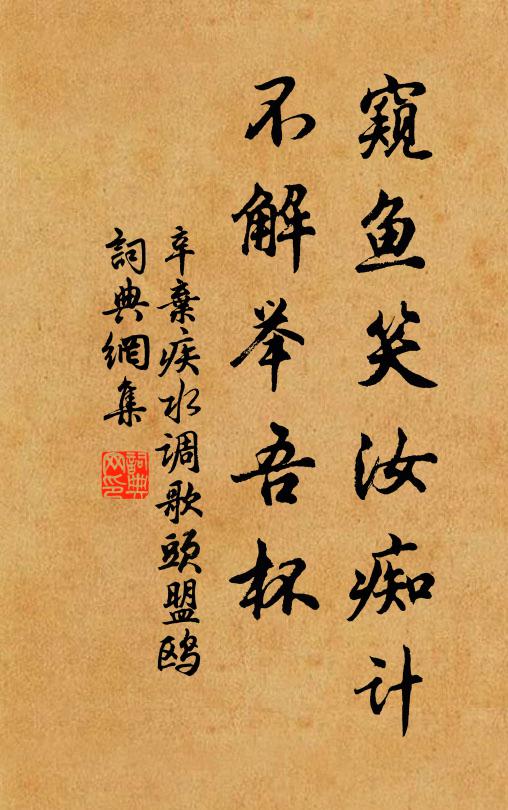 窥鱼笑汝痴计
不解举吾杯
辛棄疾水调歌頭盟鸥
詞典網集
詞典网印